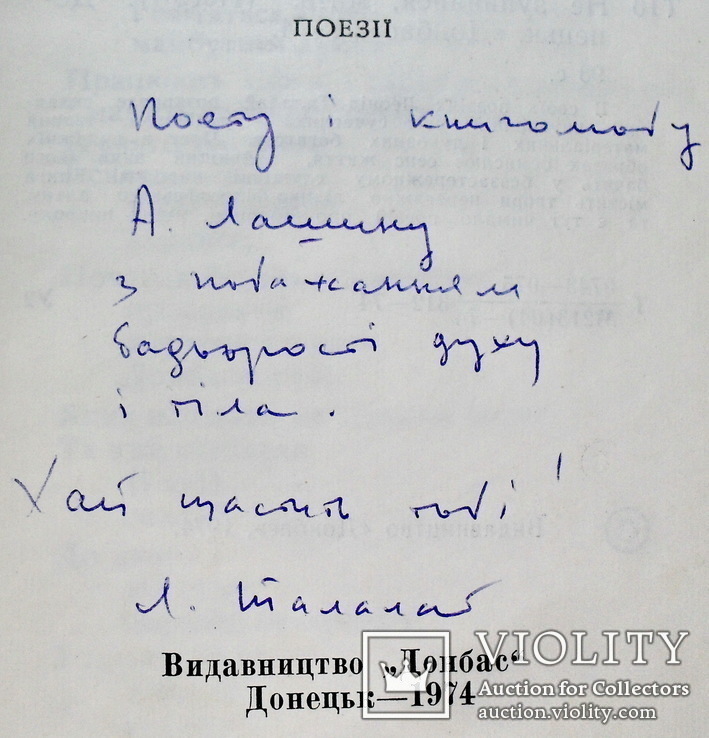 ПОЕЗІЇ
Поету і книголюбу
А. Лашину
з побажанням
бадьорості духу
і тіла.
Хай щастить тобі!
Л. Талалай
Видавництво „Донбас“
Донецьк—1974
VIOLITY
Auction for Collectors
auction.violity.com